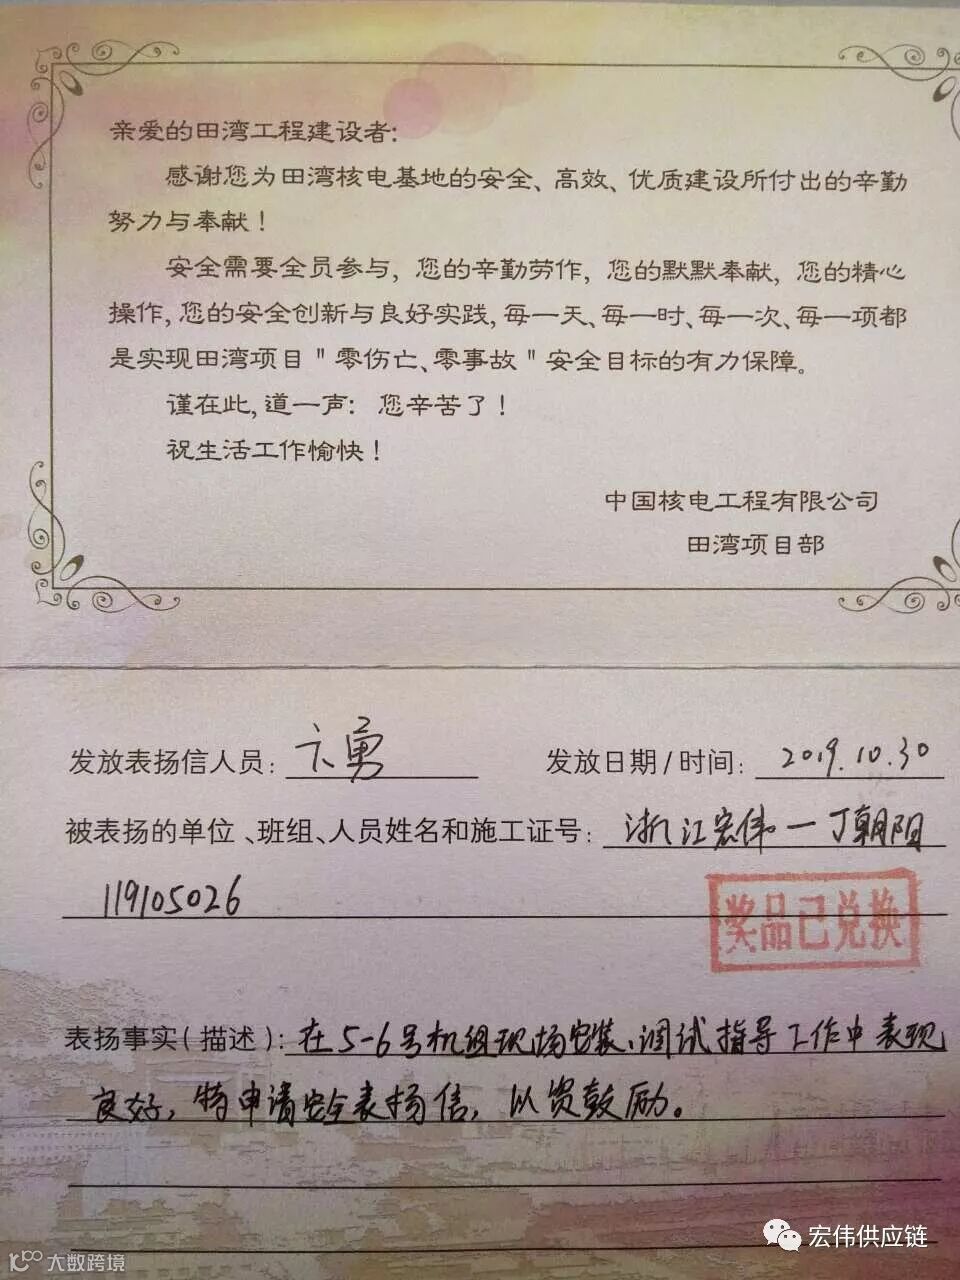 亲爱的田湾工程建设者:
感谢您为田湾核电基地的安全、高效、优质建设所付出的辛勤
努力与奉献!
安全需要全员参与,您的辛勤劳作,您的默默奉献,您的精心
操作,您的安全创新与良好实践,每一天、每一时、每一次、每一项都
是实现田湾项目"零伤亡、零事故"安全目标的有力保障。
谨在此,道一声: 您辛苦了!
祝生活工作愉快!
中国核电工程有限公司
田湾项目部
发放表扬信人员: 卞勇 发放日期/时间: 2019.10.30
被表扬的单位、班组、人员姓名和施工证号: 浙江宏伟—丁朝阳
119105026
奖品已兑换
表扬事实(描述): 在5-6号机组现场安装、调试指导工作中表现
良好,特申请安全表扬信,以资鼓励。
宏伟供应链
大数跨境